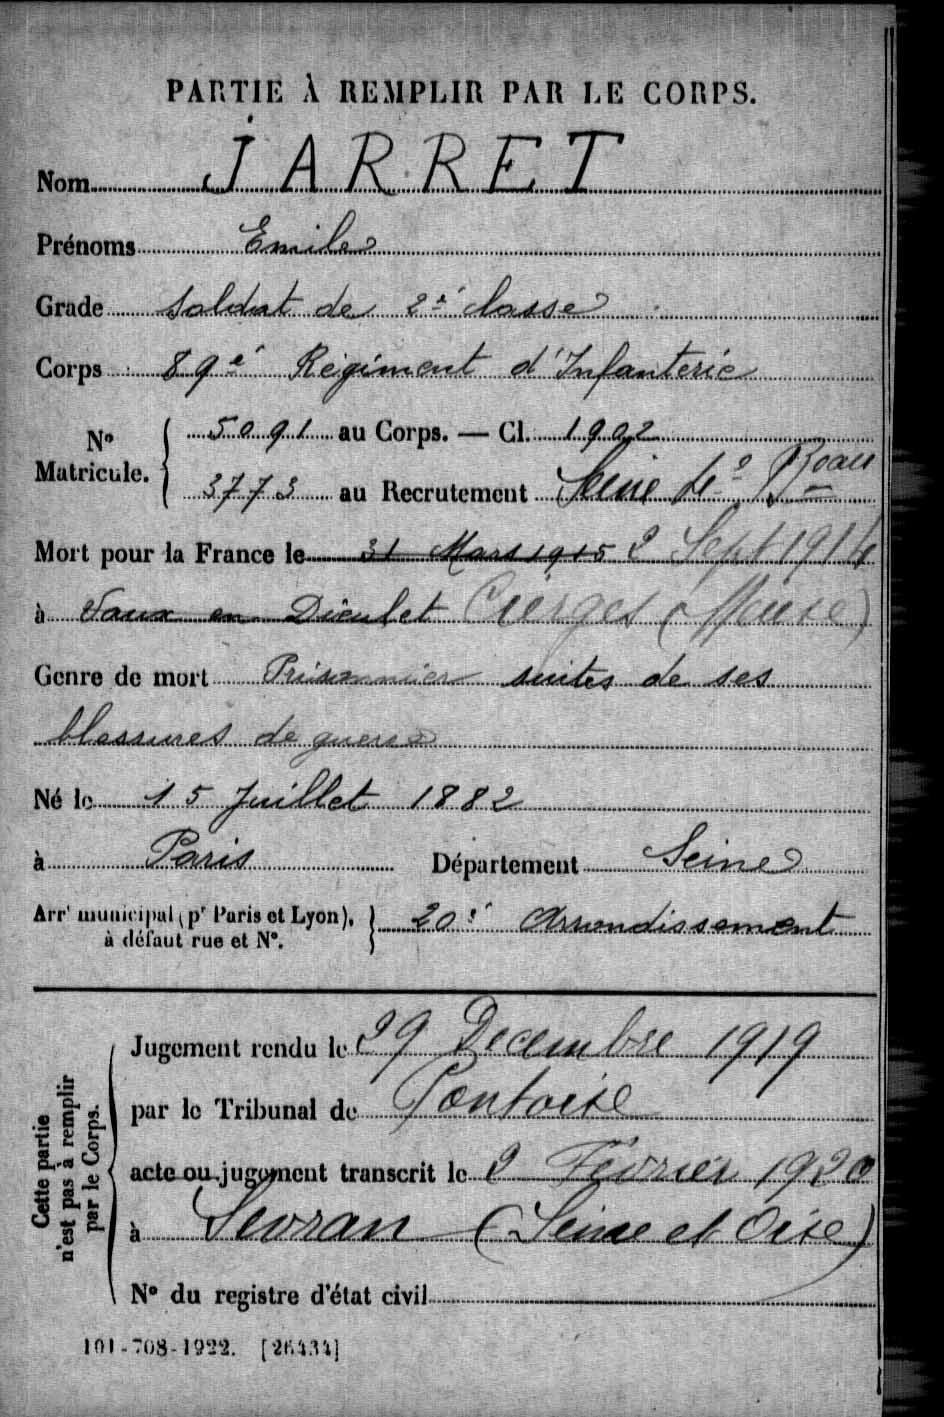 PARTIE À REMPLIR PAR LE CORPS.
Nom JARRET
Prénoms Emile
Grade soldat de 2è classe
Corps 89è Régiment d'Infanterie
Nº Matricule. 5091 au Corps. — Cl. 1902
3773 au Recrutement Seine 4º Bau
Mort pour la France le 31 Mars 1915 2 Sept 1914
à Vaux en Dieulet Cierges (Meuse)
Genre de mort Prisonnier suites de ses
blessures de guerre
Né le 15 Juillet 1882
à Paris Département Seine
Arrt municipal (pr Paris et Lyon), à défaut rue et Nº. 20è Arrondissement
Cette partie n'est pas à remplir par le Corps.
Jugement rendu le 29 Decembre 1919
par le Tribunal de Pontoise
acte ou jugement transcrit le 2 Février 1920
à Sevran (Seine et Oise)
Nº du registre d'état civil
101-708-1922. [26434]